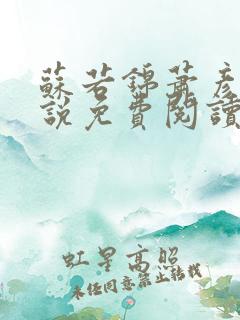 蘇若錦蕭彥
說免費閱讀
虹星高照
未經同意禁止轉載